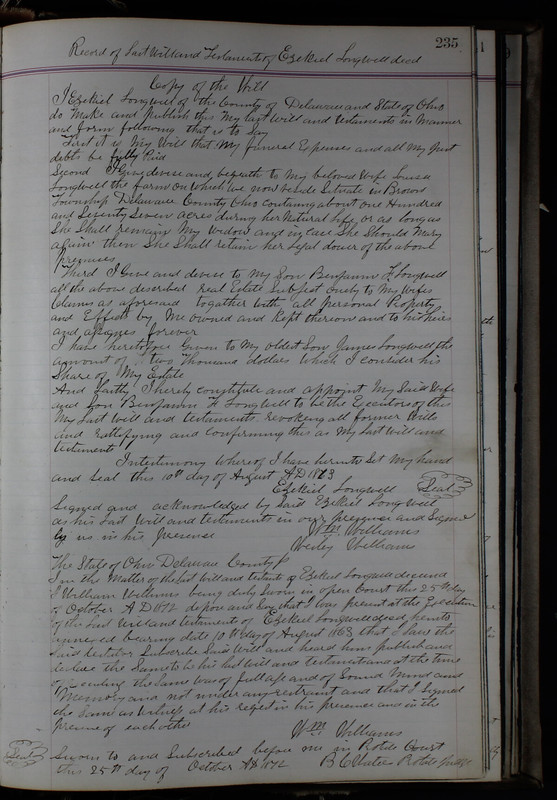 235
Record of Last Will and Testament of Ezekiel Longwell decd
Copy of the Will
I Ezekiel Longwell of the County of Delaware and State of Ohio
do Make and publish this My last Will and testaments in Manner
and form following that is to Say
First it is My Will that My funeral Expenses and all My Just
debts be fully Paid
Second I Give devise and bequeath to My beloved Wife Louisa
Longwell the farm on which we now reside Situate in Brown
Township Delaware County Ohio containing about one Hundred
and Seventy Seven acres during her Natural life, or as long as
She Shall remain My Widow and in case She Should Marry
again then She Shall retain her legal dower of the above
premises
Third I Give and devise to My Son Benjamin F. Longwell
all the above described real Estate Subject only to My Wifes
Claims as aforesaid together with all personal Property
and Effects by Me owned and Kept thereon and to his Heirs
and assignes forever
I have heretofore Given to My oldest Son James Longwell the
amount of two Thousand dollars which I consider his
Share of My Estate
And lastly I hereby constitute and appoint My Said Wife
and Son Benjamin F Longwell to be the Executors of this
My Last Will and testaments revoking all former Wills
and ratifying and confirming this as My Last Will and
testament
In testimony Whereof I have hereunto Set My hand
and Seal this 10th day of August AD 1863
Ezekiel Longwell Seal
Signed and acknowledged by Said Ezekiel Longwell
as his Last Will and testaments in our presence and Signed
by us in his presence
Wm Williams
Wesley Williams
The State of Ohio Delaware County
In the Matter of the Last Will and testents of Ezekiel Longwell deceased
I William Williams being duly Sworn in open Court this 25th day
of October AD 1872 depose and Say that I was present at the Execution
of the Last Will and testament of Ezekiel Longwell decd hereto
annexed bearing date 10th day of August 1863 that I Saw the
Said testator Subscribe Said Will and heard him publish and
declare the Same to be his Last Will and testament and at the time
of the Same was of full age and of Sound Mind and
Memory and not under any restraint and that I Signed
the Same as Witness at his request in his presence and in the
presence of each other
Wm Williams
Seal Sworn to and Subscribed before me in Probate Court
this 25th day of October AD 1872